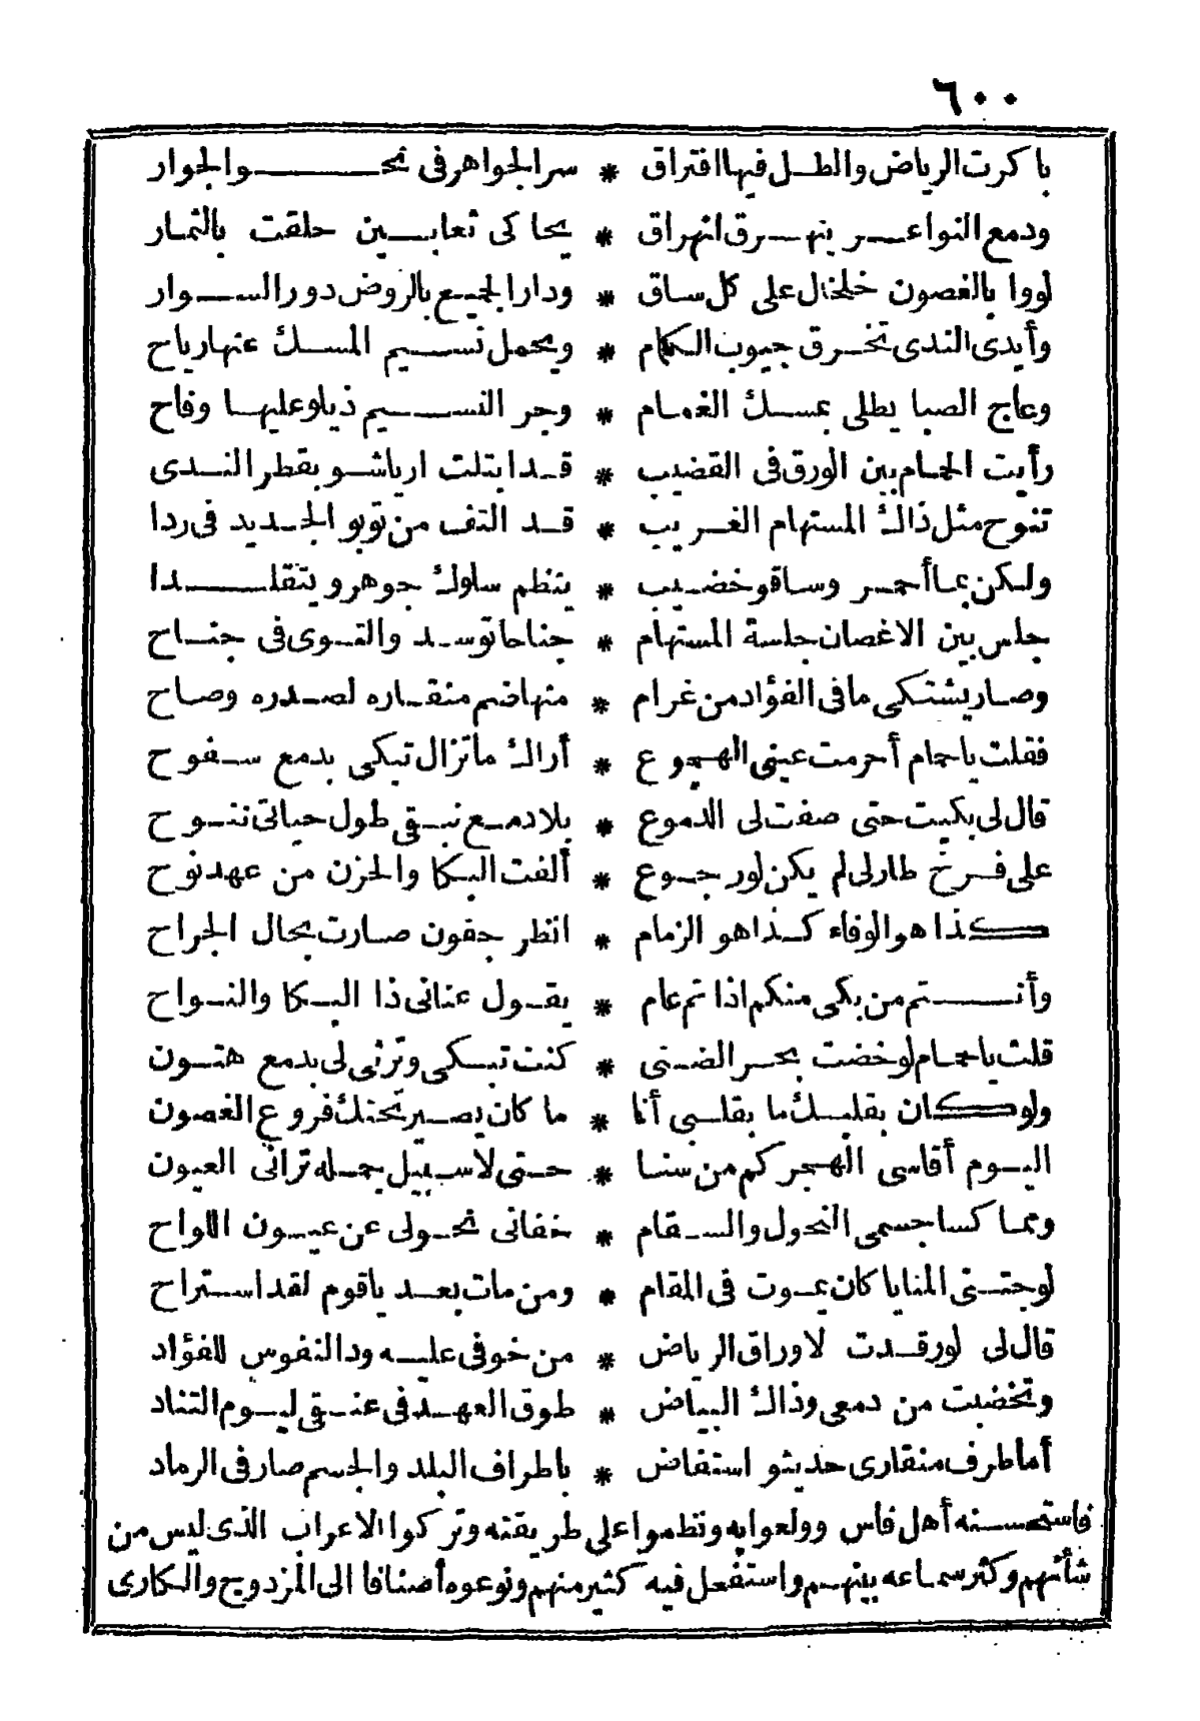 ٦٠٠
باكرت الرياض والطل فيها افتراق * سر الجواهر فى نحو الجوار
ودمع النواعر ينهرق انهراق * يحاكى ثعابين حلقت بالثمار
لووا بالغصون خلخال على كل ساق * ودار الجميع بالروض دور السوار
وأيدى الندى تخرق جيوب الكمام * ويحمل نسيم المسك عنها رياح
وعاج الصبا يطلى بمسك الغمام * وجر النسيم ذيلو عليها وفاح
رأيت الحمام بين الورق فى القضيب * قد ابتلت ارياشو بقطر الندى
تنوح مثل ذاك المستهام الغريب * قد التف من توبو الجديد فى ردا
ولكن بما أحمر وساقو خضيب * ينظم سلوك جوهر ويتقلدا
جلس بين الاغصان جلسة المستهام * جناحا توسد والتوى فى جناح
وصار يشتكى مافى الفؤاد من غرام * منها ضم منقاره لصدره وصاح
فقلت ياحمام أحرمت عينى الهجوع * أراك ماتزال تبكى بدمع سفوح
قال لى بكيت حتى صفت لى الدموع * بلادمع نبقى طول حياتى ننوح
على فرخ طار لى لم يكن لو رجوع * ألفت البكا والحزن من عهد نوح
كذا هو الوفاء كذا هو الزمام * انظر جفون صارت بحال الجراح
وأنتم من بكى منكم اذا تم عام * يقول عنانى ذا البكا والنواح
قلت ياحمام لو خضت بحر الضنى * كنت تبكى وترثى لى بدمع هتون
ولو كان بقلبك ما بقلبى أنا * ما كان يصير تحتك فروع الغصون
اليوم أقاسى الهجر كم من سنا * حتى لا سبيل جمله ترانى العيون
ومما كسا جسمى النحول والسقام * خفانى نحولى عن عيون اللواح
لوجتنى المنايا كان يموت فى المقام * ومن مات بعد ياقوم لقد استراح
قال لى لو رقدت لاوراق الرياض * من خوفى عليه ود النفوس للفؤاد
وتخضبت من دمعى وذاك البياض * طوق العهد فى عنقى ليوم التناد
أما طرف منقارى حديثو استفاض * باطراف البلد والجسم صار فى الرماد
فاستحسنه أهل فاس وولعوا به ونظموا على طريقته وتركوا الاعراب الذى ليس من
شأنهم وكثر سماعه بينهم واستفحل فيه كثير منهم ونوعوه أصنافا الى المزدوج والكارى